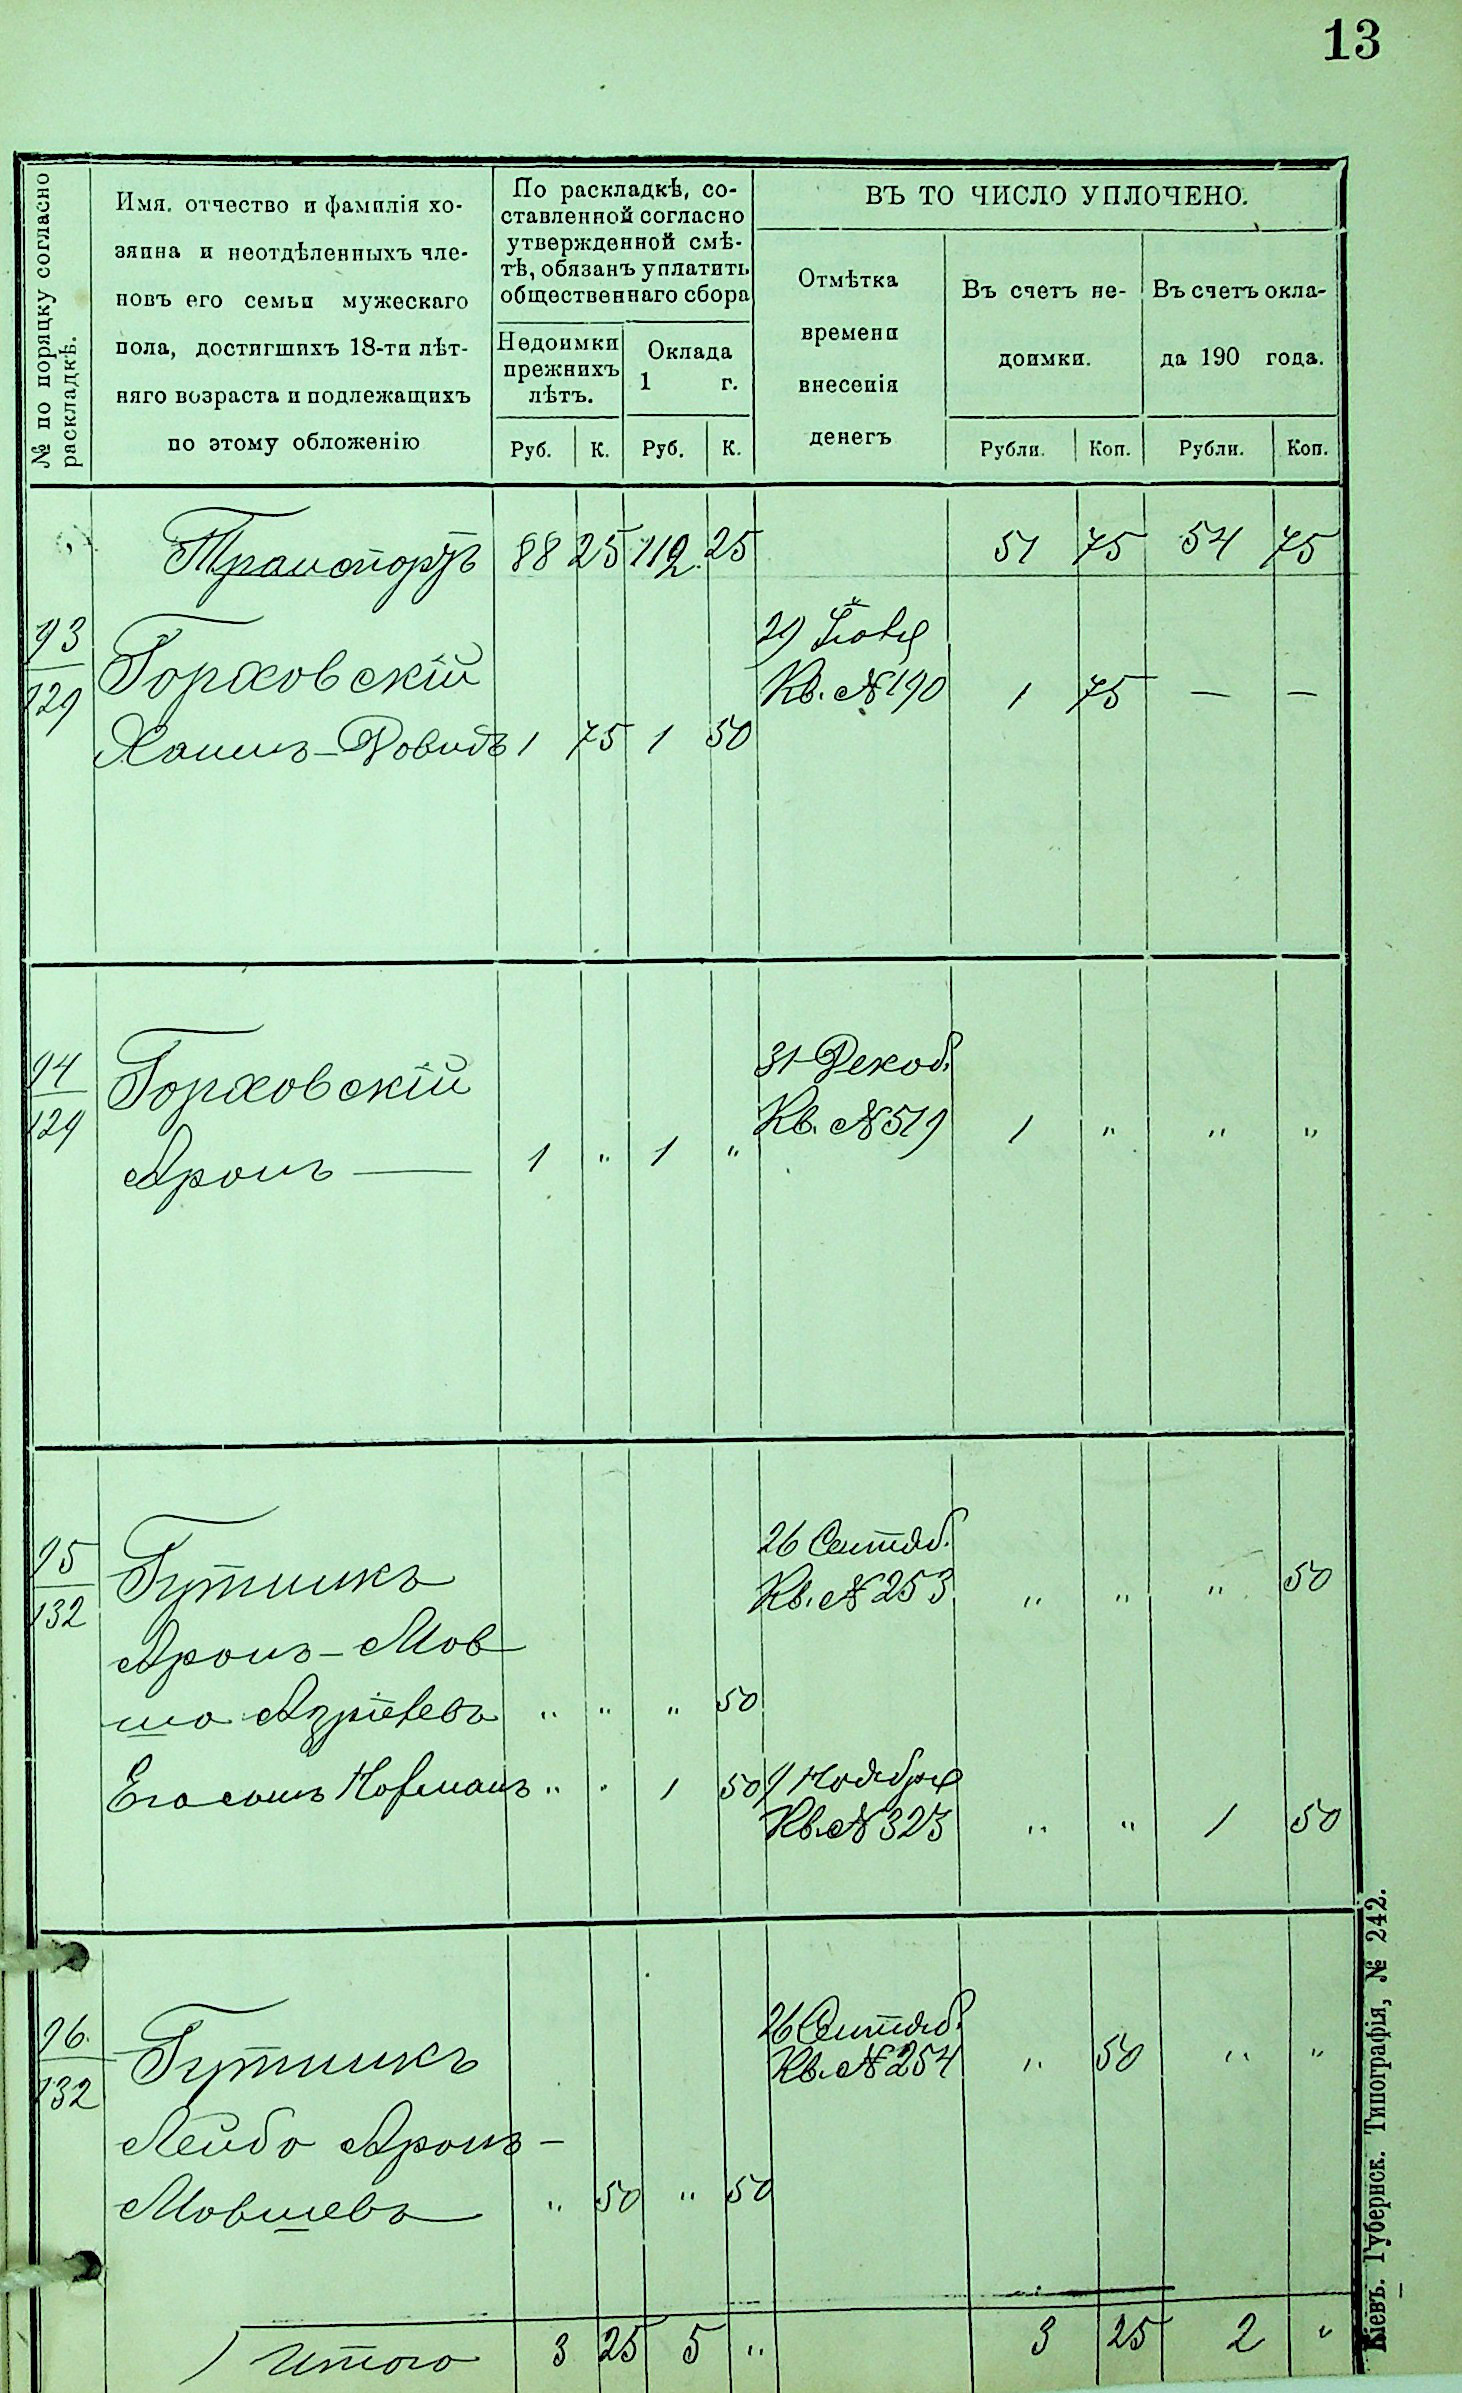 13
№ по порядку согласно
раскладкѣ.
Имя, отчество и фамилія хо-
зяина и неотдѣленныхъ чле-
новъ его семьи мужескаго
пола, достигшихъ 18-ти лѣт-
няго возраста и подлежащихъ
по этому обложенію
По раскладкѣ, со-
ставленной согласно
утвержденной смѣ-
тѣ, обязанъ уплатить
общественнаго сбора
Недоимки
прежнихъ
лѣтъ.
Оклада
1 г.
Руб. К. Руб. К.
ВЪ ТО ЧИСЛО УПЛОЧЕНО.
Отмѣтка
времени
внесенія
денегъ
Въ счетъ не-
доимки.
Въ счетъ окла-
да 190 года.
Рубли. Коп. Рубли. Коп.
Транспортъ 88 25 112 25 51 75 54 75
93
129
29
Горховскій
Кв. №190 1 75 — —
Хаимъ-Довидъ 1 75 1 50
94
129
31 Декаб.
Горховскій
Кв. №519 1 " " "
Аронъ — 1 " 1 "
95
132
26 Сентяб.
Гутникъ
Кв. №253 " " " 50
Аронъ-Мов
ша Азріелевъ " " " 50
Его сынъ Нофманъ " " 1 50 9 Ноября
Кв. №323 " " 1 50
96
132
26 Сентяб.
Гутникъ
Кв. №254 " 50 " "
Лейба Аронъ-
Мовшевъ " 50 " 50
Итого 3 25 5 " 3 25 2 "
Кіевъ. Губернск. Типографія, № 242.